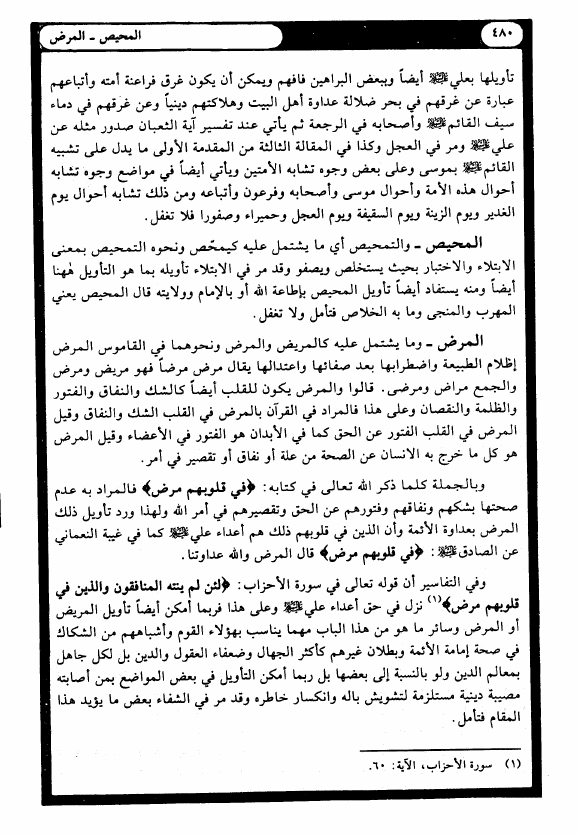 ٤٨٠
المحيص ــ المرض
تأويلها بعلي ﷺ أيضاً وببعض البراهين فافهم ويمكن أن يكون غرق فراعنة أمته وأتباعهم
عبارة عن غرقهم في بحر ضلالة عداوة أهل البيت وهلاكتهم دينياً وعن غرقهم في دماء
سيف القائم ﷺ وأصحابه في الرجعة ثم يأتي عند تفسير آية الثعبان صدور مثله عن
علي ﷺ ومر في العجل وكذا في المقالة الثالثة من المقدمة الأولى ما يدل على تشبيه
القائم ﷺ بموسى وعلى بعض وجوه تشابه الأمتين ويأتي أيضاً في مواضع وجوه تشابه
أحوال هذه الأمة وأحوال موسى وأصحابه وفرعون وأتباعه ومن ذلك تشابه أحوال يوم
الغدير ويوم الزينة ويوم السقيفة ويوم العجل وحميراء وصفورا فلا تغفل.
المحيص ــ والتمحيص أي ما يشتمل عليه كيمحّص ونحوه التمحيص بمعنى
الابتلاء والاختبار بحيث يستخلص ويصفو وقد مر في الابتلاء تأويله بما هو التأويل هٰهنا
أيضاً ومنه يستفاد أيضاً تأويل المحيص بإطاعة الله أو بالإمام وولايته قال المحيص يعني
المهرب والمنجى وما به الخلاص فتأمل ولا تغفل.
المرض ــ وما يشتمل عليه كالمريض والمرض ونحوهما في القاموس المرض
إظلام الطبيعة واضطرابها بعد صفائها واعتدالها يقال مرض مرضاً فهو مريض ومرض
والجمع مراض ومرضى. قالوا والمرض يكون للقلب أيضاً كالشك والنفاق والفتور
والظلمة والنقصان وعلى هذا فالمراد في القرآن بالمرض في القلب الشك والنفاق وقيل
المرض في القلب الفتور عن الحق كما في الأبدان هو الفتور في الأعضاء وقيل المرض
هو كل ما خرج به الانسان عن الصحة من علة أو نفاق أو تقصير في أمر.
وبالجملة كلما ذكر الله تعالى في كتابه: ﴿في قلوبهم مرض﴾ فالمراد به عدم
صحتها بشكهم ونفاقهم وفتورهم عن الحق وتقصيرهم في أمر الله ولهذا ورد تأويل ذلك
المرض بعداوة الأئمة وأن الذين في قلوبهم ذلك هم أعداء علي ﷺ كما في غيبة النعماني
عن الصادق ﷺ: ﴿في قلوبهم مرض﴾ قال المرض والله عداوتنا.
وفي التفاسير أن قوله تعالى في سورة الأحزاب: ﴿لئن لم ينته المنافقون والذين في
قلوبهم مرض﴾(١) نزل في حق أعداء علي ﷺ وعلى هذا فربما أمكن أيضاً تأويل المريض
أو المرض وسائر ما هو من هذا الباب مهما يناسب بهؤلاء القوم وأشباههم من الشكاك
في صحة إمامة الأئمة وبطلان غيرهم كأكثر الجهال وضعفاء العقول والدين بل لكل جاهل
بمعالم الدين ولو بالنسبة إلى بعضها بل ربما أمكن التأويل في بعض المواضع بمن أصابته
مصيبة دينية مستلزمة لتشويش باله وانكسار خاطره وقد مر في الشفاء بعض ما يؤيد هذا
المقام فتأمل.
(١) سورة الأحزاب، الآية: ٦٠.